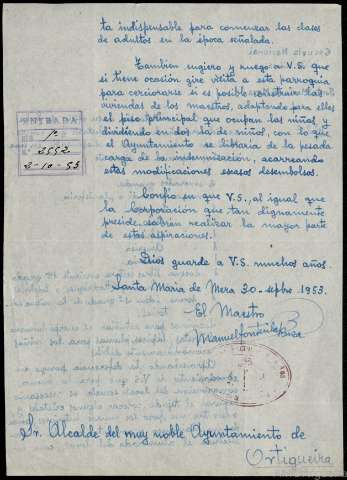 ta indispensable para comenzar las clases
de adultos en la época señalada.
Tambien sugiero y ruego a V.S. que
si tiene ocasión gire visita a esta parroquia
para cerciorarse si es posible construir las
viviendas de los maestros, adaptando para ellas
el piso principal que ocupan los niños y
dividiendo en dos la de niños, con lo que
el Ayuntamiento se libraria de la pesada
carga de la indemnización, acarreando
estas modificaciones escasos desembolsos.
ENTRADA
Nº
2552
2-10-53
Confío en que V.S., al igual que
la Corporación que tan dignamente
preside, sabrán realizar la mayor parte
de estas aspiraciones.
Dios guarde a V.S. muchos años.
Santa María de Mera 30-sepbre 1953.
El Maestro
Manuel
Sr. Alcalde del muy noble Ayuntamiento de
Ortigueira